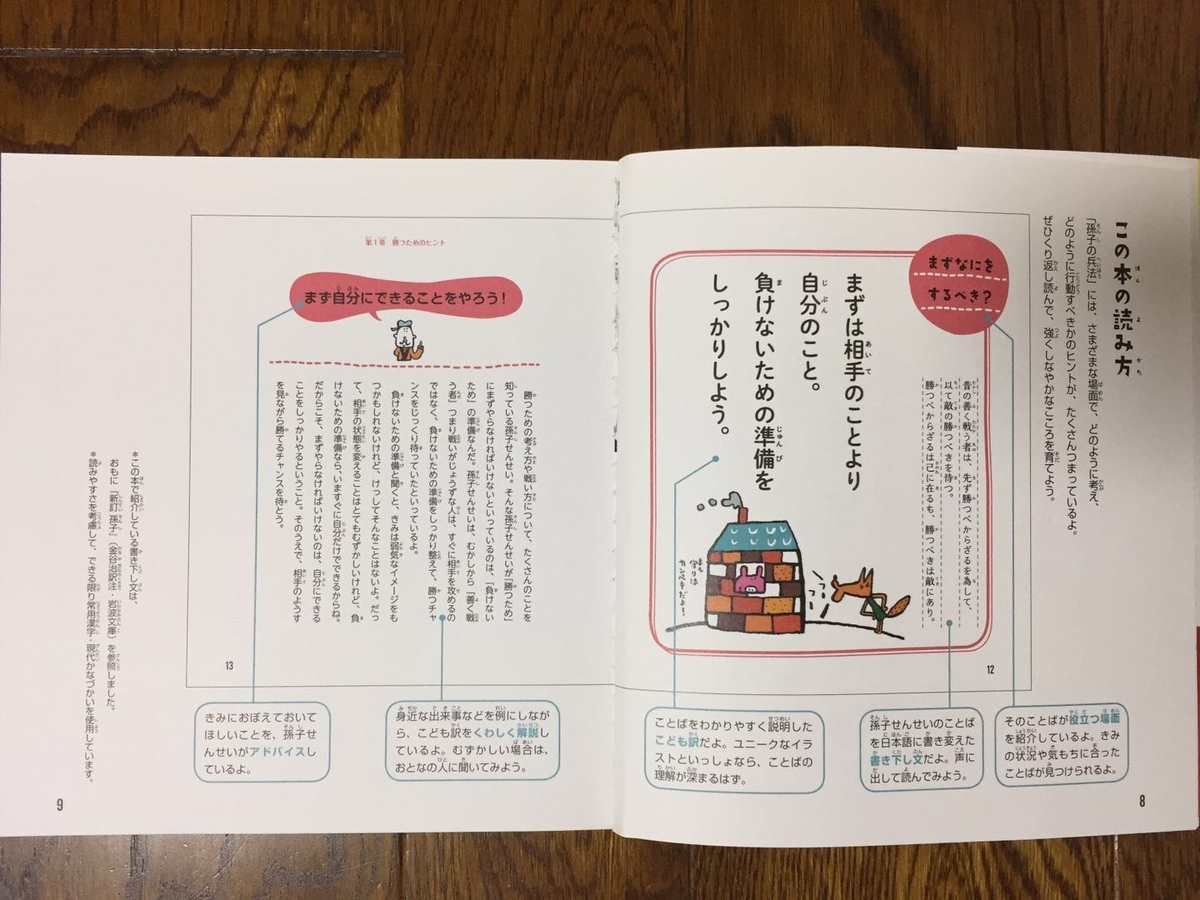 この本の読み方
「孫子の兵法」には、さまざまな場面で、どのように考え、
どのように行動すべきかのヒントが、たくさんつまっているよ。
ぜひくり返し読んで、強くしなやかなこころを育てよう。
まずなにを
するべき?
昔の善く戦う者は、先ず勝つべからざるを為して、
以て敵の勝つべきを待つ。
勝つべからざるは己に在るも、勝つべきは敵にあり。
まずは相手のことより
自分のこと。
負けないための準備を
しっかりしよう。
まも
守りは
カンペキだよ!
12
そのことばが役立つ場面
を紹介しているよ。きみ
の状況や気もちに合った
ことばが見つけられるよ。
孫子せんせいのことば
を日本語に書き変えた
書き下し文だよ。声に
出して読んでみよう。
ことばをわかりやすく説明した
こども訳だよ。ユニークなイラ
ストといっしょなら、ことばの
理解が深まるはず。
8
第1章 勝つためのヒント
まず自分にできることをやろう!
勝つための考え方や戦い方について、たくさんのことを
知っている孫子せんせい。そんな孫子せんせいが「勝つため」
にまずやらなければいけないといっているのは、「負けない
ため」の準備なんだ。孫子せんせいは、むかしから「善く戦
う者」つまり戦いがじょうずな人は、すぐに相手を攻めるの
ではなく、負けないための準備をしっかり整えて、勝つチャ
ンスをじっくり待っていたといっているよ。
負けないための準備と聞くと、きみは弱気なイメージをも
つかもしれないけれど、けっしてそんなことはないよ。だっ
て、相手の状態を変えることはとてもむずかしいけれど、負
けないための準備なら、いますぐに自分だけでできるからね。
だからこそ、まずやらなければいけないのは、自分にできる
ことをしっかりやるということ。そのうえで、相手のようす
を見ながら勝てるチャンスを待とう。
13
身近な出来事などを例にしなが
ら、こども訳をくわしく解説し
ているよ。むずかしい場合は、
おとなの人に聞いてみよう。
きみにおぼえておいて
ほしいことを、孫子せ
んせいがアドバイスし
ているよ。
*この本で紹介している書き下し文は、
おもに『新訂 孫子』(金谷治訳注・岩波文庫)を参照しました。
*読みやすさを考慮して、できる限り常用漢字・現代かなづかいを使用しています。
9